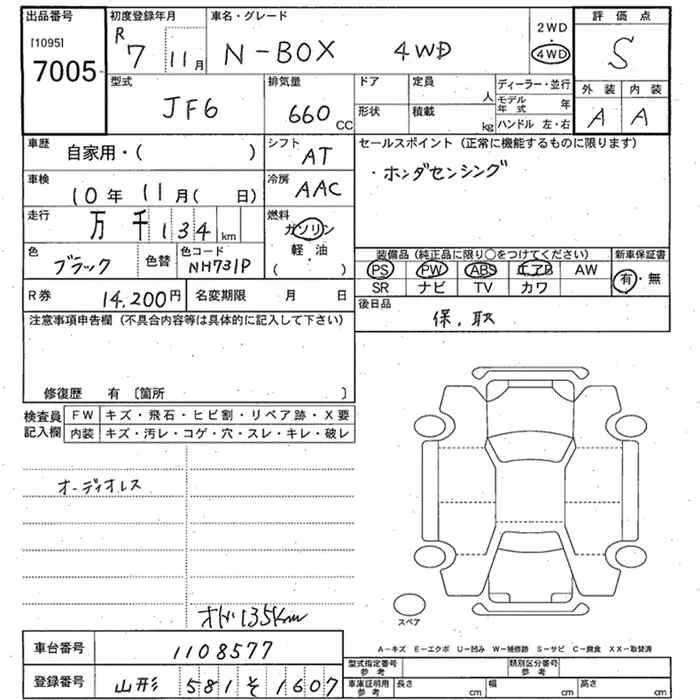 出品番号
[1095]
7005
初度登録年月
R 7 11月
車名・グレード
N-BOX 4WD
2WD
・
4WD
評価点
S
外装 内装
A A
型式
JF6
排気量
660 CC
ドア
形状
定員 人
積載 kg
ディーラー・並行
モデル年式 年
ハンドル 左・右
車歴
自家用・( )
シフト
AT
セールスポイント(正常に機能するものに限ります)
・ホンダセンシング
車検
10年 11月( 日)
冷房
AAC
走行
万 千 134 km
燃料
ガソリン
軽・油
( )
色
ブラック
色替
色コード
NH731P
装備品(純正品に限り○をつけてください)
新車保証書
PS PW ABS エアB AW
SR ナビ TV カワ
有・無
R券
14,200円
名変期限 月 日
後日品
保、取
注意事項申告欄(不具合内容等は具体的に記入して下さい)
修復歴 有〔箇所 〕
検査員記入欄
FW キズ・飛石・ヒビ割・リペア跡・X要
内装 キズ・汚レ・コゲ・穴・スレ・キレ・破レ
オーディオレス
オド135Km
スペア
A-キズ E-エクボ U-凹み W-補修跡 S-サビ C-腐食 XX-取替済
車台番号
1108577
登録番号
山形 581 そ 1607
型式指定番号
参考
類別区分番号
参考
車庫証明用
参考
長さ cm
幅 cm
高さ cm